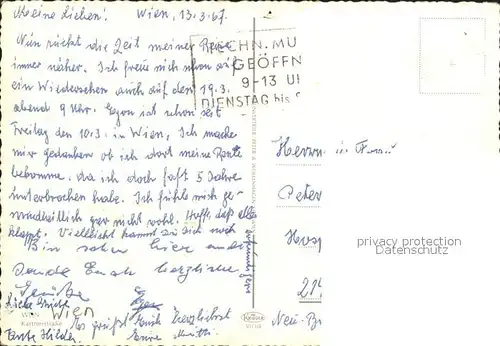 Meine Lieben! Wien, 13.3.67.
Nun rückt die Zeit meiner Reise
immer näher. Ich freue mich schon auf
ein Wiedersehen auch auf den 19.3.
abend 9 Uhr. Egon ist schon seit
Freitag den 10.3. in Wien, Ich mache
mir gedanken ob ich dort meine Rente
bekomme. da ich doch fast 5 Jahre
unterbrochen habe. Ich fühle mich ge-
sundheitlich gar nicht wohl. Hoffe daß alles
klappt. Vielleicht kommt
Bin schon hier und
sende Euch herzliche
Grüße
Es grüßt Euch herzlichst
Tante Hilde Eure Mutti
Wien
TECHN. MU
GEÖFFN
9-13 U
DIENSTAG bis
Herrn u. Frau
Peter
214
Neu-B
WIEN
Kärntnerstraße
privacy protection
Datenschutz